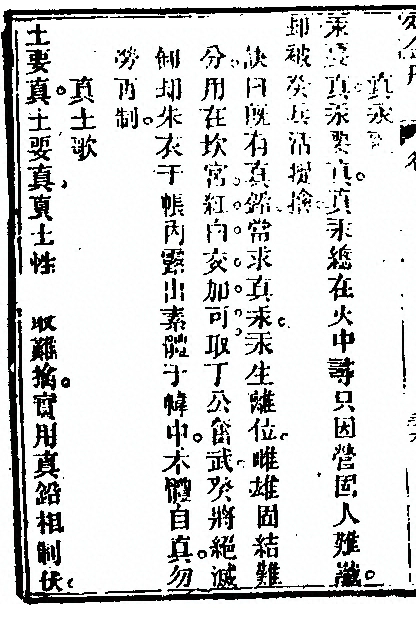 真汞
汞要真汞要真真汞總在火中尋只因營固人難識
却被癸兵沾擬擒
訣曰既有真鉛當求真汞汞生離位雌雄固結難
分用在坎宮紅白交加可取丁公奮武癸將絕滅
卸却朱衣于帳內露出素體于幃中木體自真勿
勞再制
真土歌
土要真土要真真土性 取難擒實用真鉛相制伏